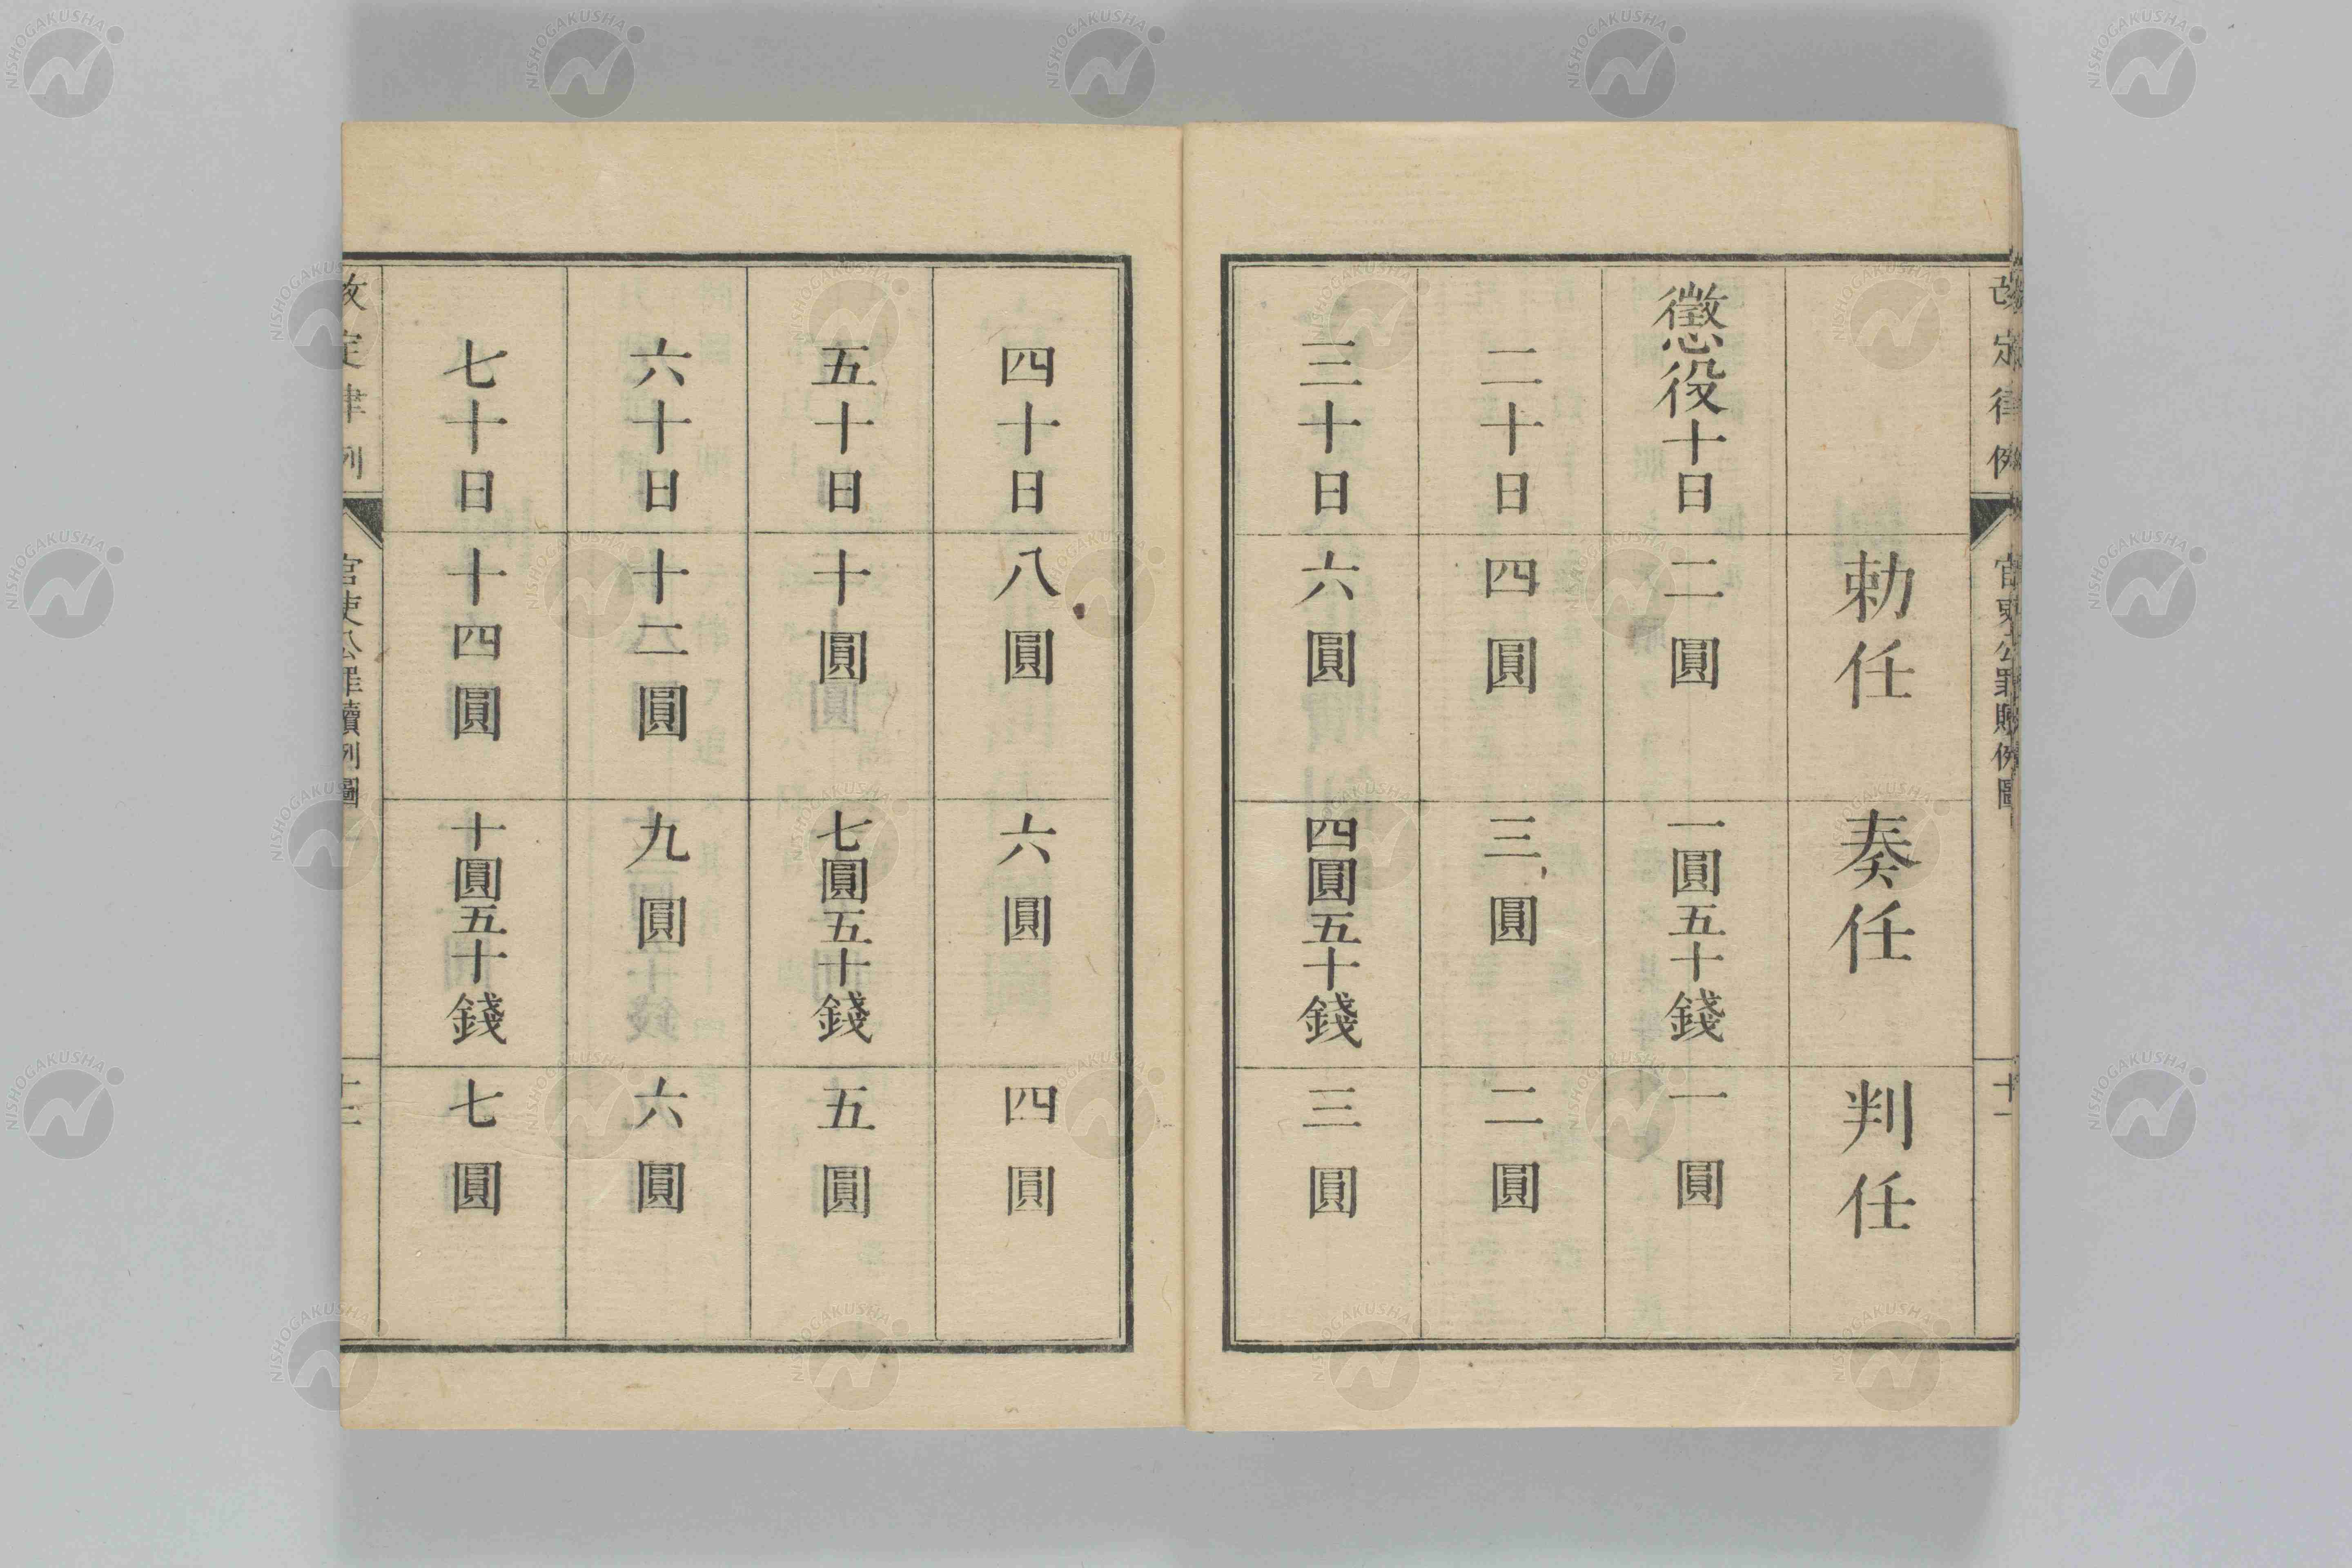 改定律例
官吏公罪贖例圖
十一
勅任
奏任
判任
懲役十日
二圓
一圓五十錢
一圓
二十日
四圓
三圓
二圓
三十日
六圓
四圓五十錢
三圓
四十日
八圓
六圓
四圓
五十日
十圓
七圓五十錢
五圓
六十日
十二圓
九圓
六圓
七十日
十四圓
十圓五十錢
七圓
改定律例
官吏公罪贖例圖
NISHOGAKUSHA